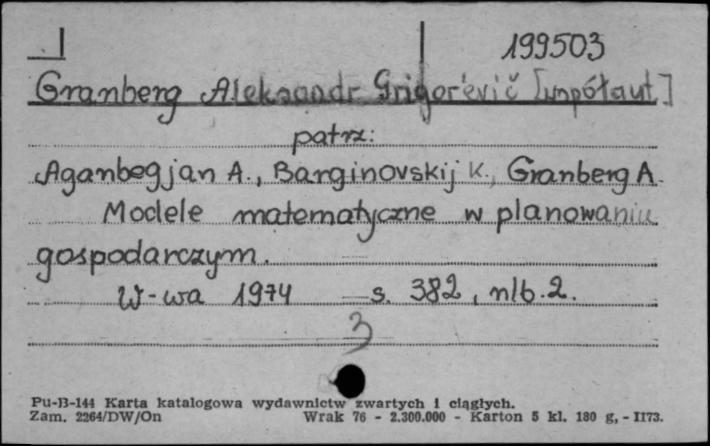 199503
Granberg Aleksandr Grigor'evič [współaut.]
patrz:
Aganbegjan A., Barginovskij K., Granberg A.
Modele matematyczne w planowaniu
gospodarczym.
W-wa 1974 s. 382, nlb. 2.
3
Pu-B-144 Karta katalogowa wydawnictw zwartych i ciągłych.
Zam. 2264/DW/On Wrak 76 - 2.300.000 - Karton 5 kl. 180 g, - II73.